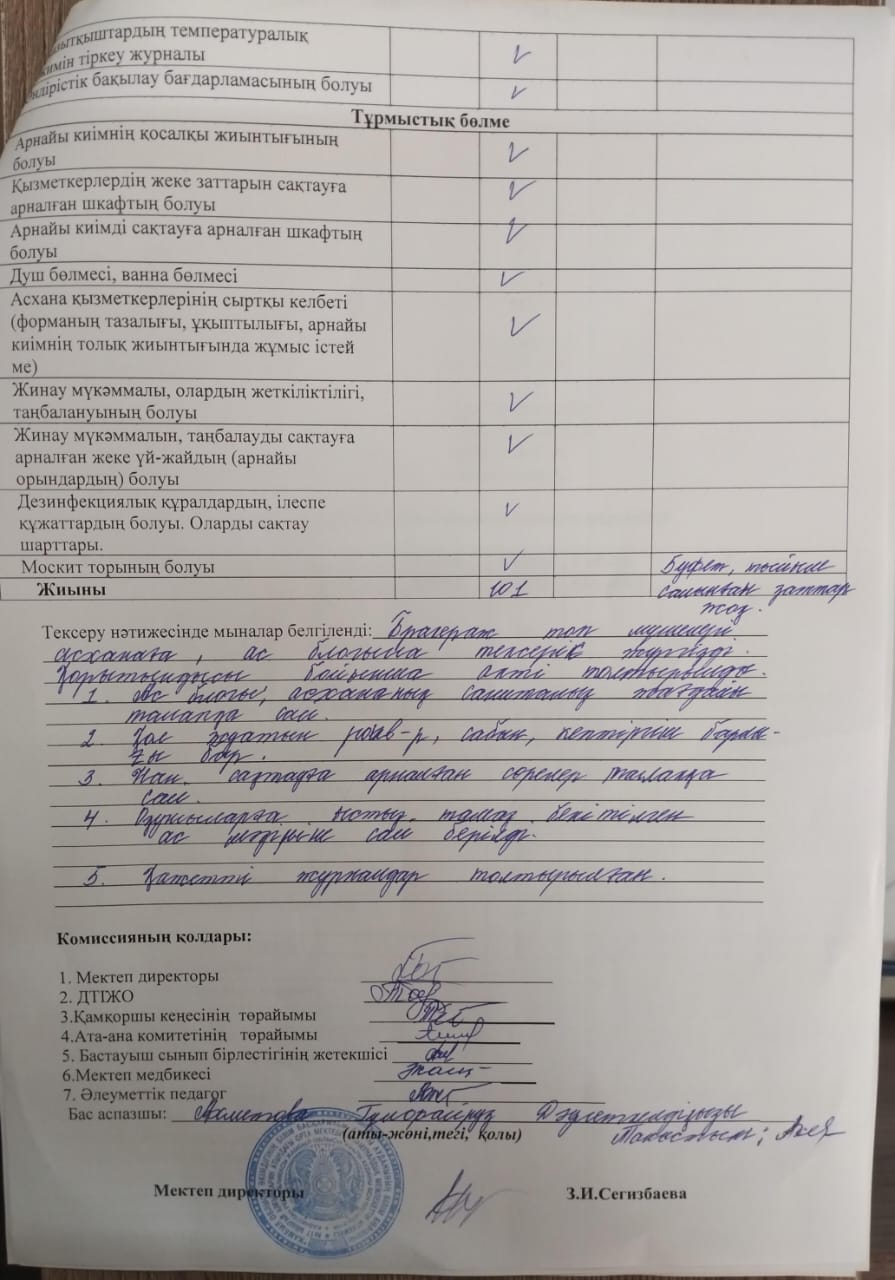 ытқыштардың температуралық
жимін тіркеу журналы
ндірістік бақылау бағдарламасының болуы
Тұрмыстық бөлме
Арнайы киімнің қосалқы жиынтығының
болуы
Қызметкерлердің жеке заттарын сақтауға
арналған шкафтың болуы
Арнайы киімді сақтауға арналған шкафтың
болуы
Душ бөлмесі, ванна бөлмесі
Асхана қызметкерлерінің сыртқы келбеті
(форманың тазалығы, ұқыптылығы, арнайы
киімнің толық жиынтығында жұмыс істей
ме)
Жинау мүкәммалы, олардың жеткіліктілігі,
таңбалануының болуы
Жинау мүкәммалын, таңбалауды сақтауға
арналған жеке үй-жайдың (арнайы
орындардың) болуы
Дезинфекциялық құралдардың, ілеспе
құжаттардың болуы. Оларды сақтау
шарттары.
Москит торының болуы
Буфет, тыйым
Жиыны 101 салынған заттар
жоқ.
Тексеру нәтижесінде мыналар белгіленді: Бракераж топ мүшелері
асханаға, ас блогына тексеріс жүргізді.
Қорытындысы бойынша акті толтырылды.
1. Ас блогы, асхананың санитарлық жағдайы
талапқа сай.
2. Қол жуатын рак-р, сабын, кептіргіш барлы-
ғы бар.
3. Нан сақтауға арналған сөрелер талапқа
сай.
4. Оқушыларға ыстық тамақ бекітілген
ас мәзіріне сай беріледі.
5. Қажетті журналдар толтырылған.
Комиссияның қолдары:
1. Мектеп директоры
2. ДТІЖО
3.Қамқоршы кеңесінің төрайымы
4.Ата-ана комитетінің төрайымы
5. Бастауыш сынып бірлестігінің жетекшісі
6.Мектеп медбикесі
7. Әлеуметтік педагог
Бас аспазшы: Ахметова Дәулеткелдіқызы
(аты-жөні,тегі, қолы) Таныстым;
Мектеп директоры З.И.Сегизбаева